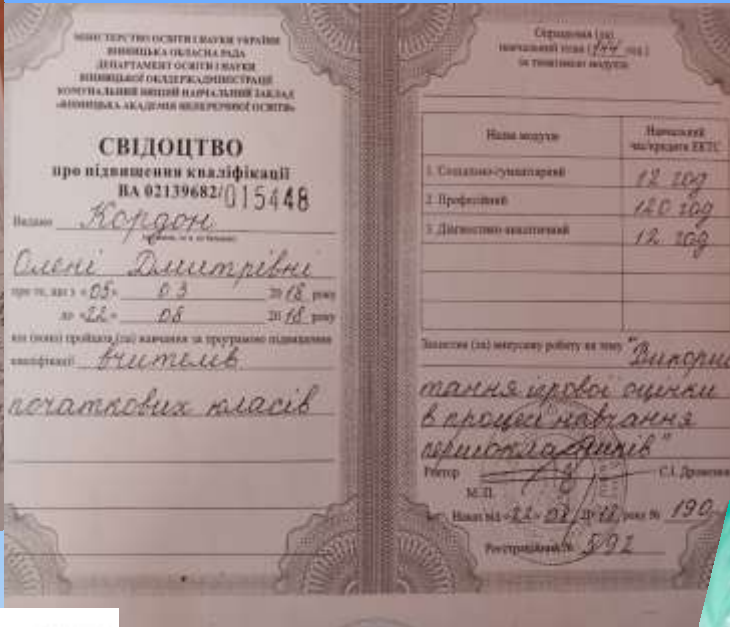 МІНІСТЕРСТВО ОСВІТИ І НАУКИ УКРАЇНИ
ВІННИЦЬКА ОБЛАСНА РАДА
ДЕПАРТАМЕНТ ОСВІТИ І НАУКИ
ВІННИЦЬКОЇ ОБЛДЕРЖАДМІНІСТРАЦІЇ
КОМУНАЛЬНИЙ ВИЩИЙ НАВЧАЛЬНИЙ ЗАКЛАД
«ВІННИЦЬКА АКАДЕМІЯ НЕПЕРЕРВНОЇ ОСВІТИ»
СВІДОЦТВО
про підвищення кваліфікації
ВА 02139682/015448
Видано Кордон
Олені Дмитрівні
про те, що з «05» 03 2018 року
до «22» 08 2018 року
він (вона) пройшла (ла) навчання за програмою підвищення
кваліфікації вчителів
початкових класів
навчальний план (144 год.)
за тематикою модулів
Назва модуля
Навчальний
час/кредити ЕКТС
1. Соціально-гуманітарний 12 год
2. Професійний 120 год
3. Діагностико-аналітичний 12 год
Захистив (ла) випускну роботу на тему "Викорис
тання ігрової оцінки
в процесі навчання
першокласників"
Ректор С.І. Дровозюк
М.П.
Наказ від «22» 08 2018 року № 190
Реєстраційний № 592